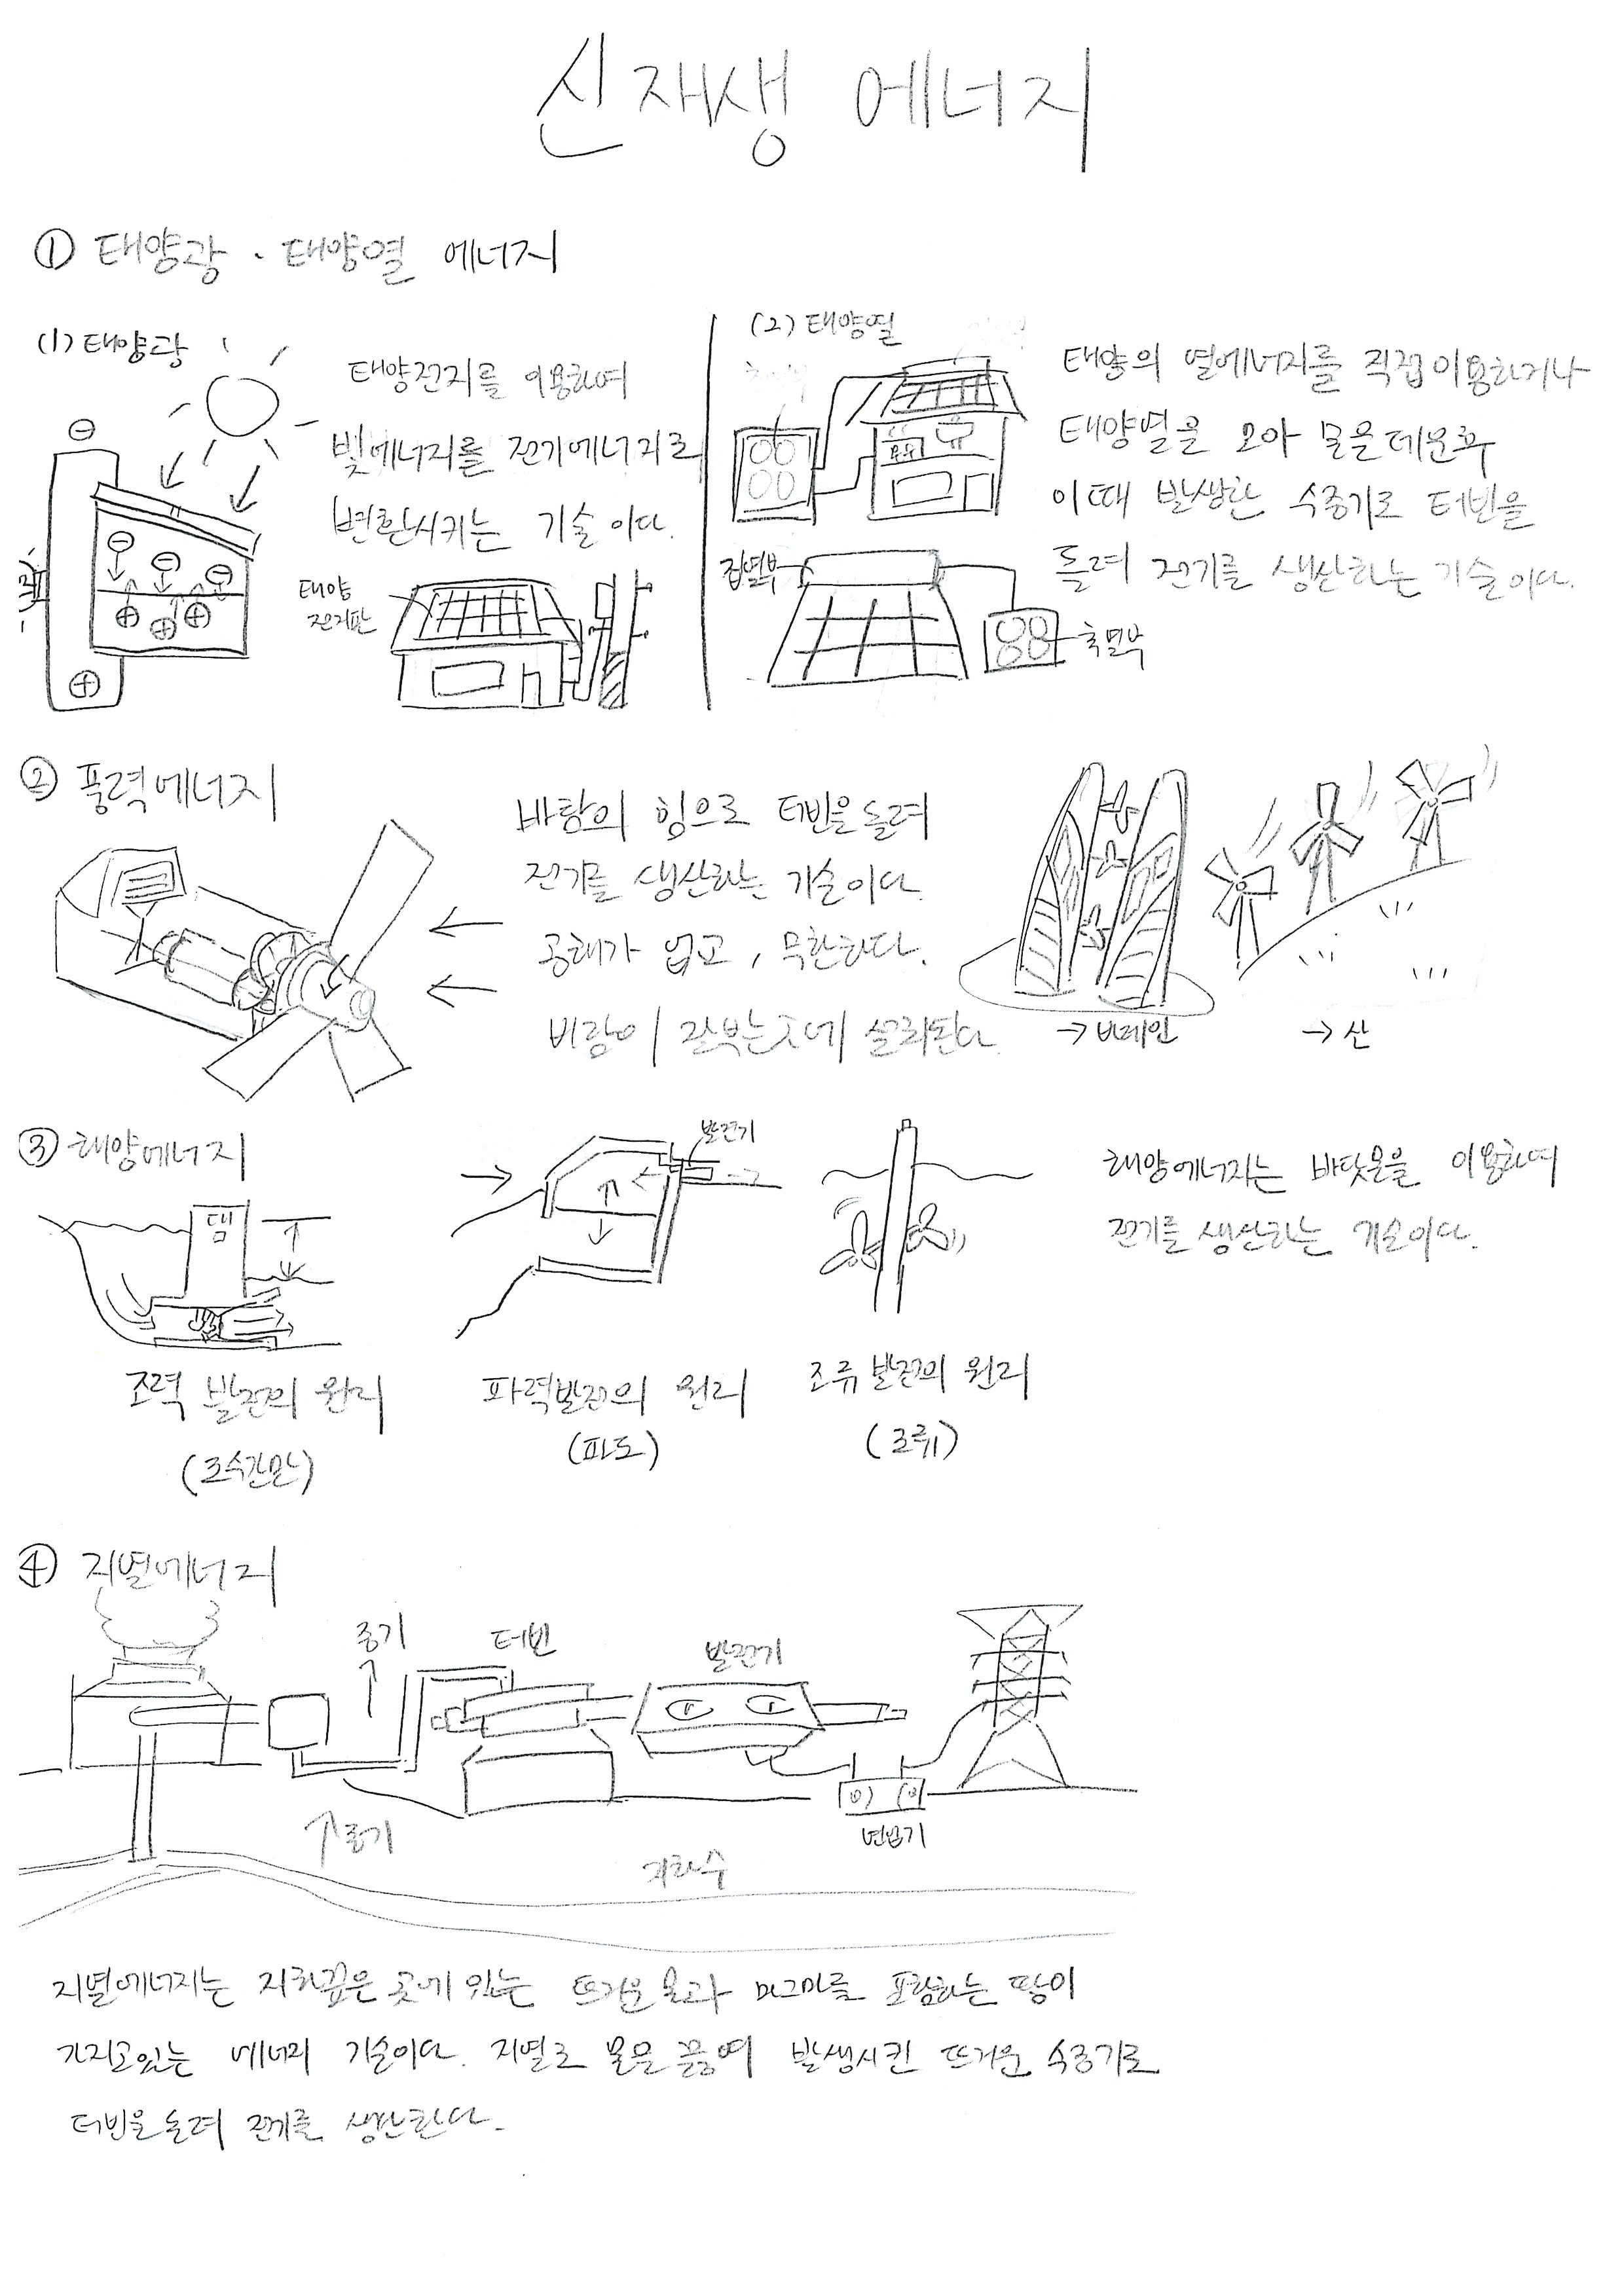 신재생 에너지
① 태양광 · 태양열 에너지
(1) 태양광
태양전지를 이용하여
빛에너지를 전기에너지로
변환시키는 기술이다.
⊖
⊖ ⊖ ⊖
⊕ ⊕ ⊕
⊕
태양
전지판
(2) 태양열
태양의 열에너지를 직접이용하거나
태양열을 모아 물을데운후
이때 발생한 수증기로 터빈을
돌려 전기를 생산하는 기술이다.
집열부
축열부
② 풍력에너지
바람의 힘으로 터빈을돌려
전기를 생산하는 기술이다.
공해가 없고, 무한하다.
바람이 잘부는곳에 설치된다.
→ 바레인
→ 산
③ 해양에너지
댐
발전기
해양에너지는 바닷물을 이용하여
전기를 생산하는 기술이다.
조력 발전의 원리
(조수간만)
파력발전의 원리
(파도)
조류 발전의 원리
(조류)
④ 지열에너지
증기
터빈
발전기
↑증기
변압기
지하수
지열에너지는 지하깊은 곳에 있는 뜨거운 물과 마그마를 포함하는 땅이
가지고있는 에너지 기술이다. 지열로 물을 끓여 발생시킨 뜨거운 수증기로
터빈을돌려 전기를 생산한다.